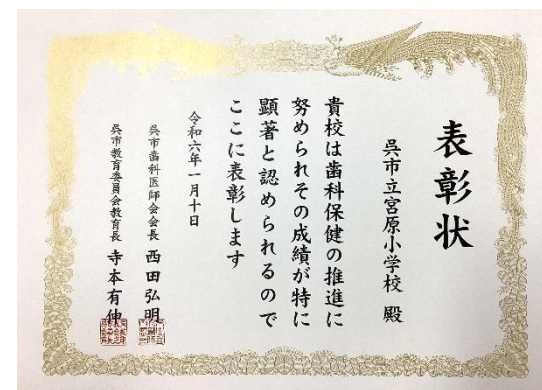 表彰状
呉市立宮原小学校 殿
貴校は歯科保健の推進に
努められその成績が特に
顕著と認められるので
ここに表彰します
令和六年一月十日
呉市歯科医師会会長 西田弘明
呉市教育委員会教育長 寺本有伸